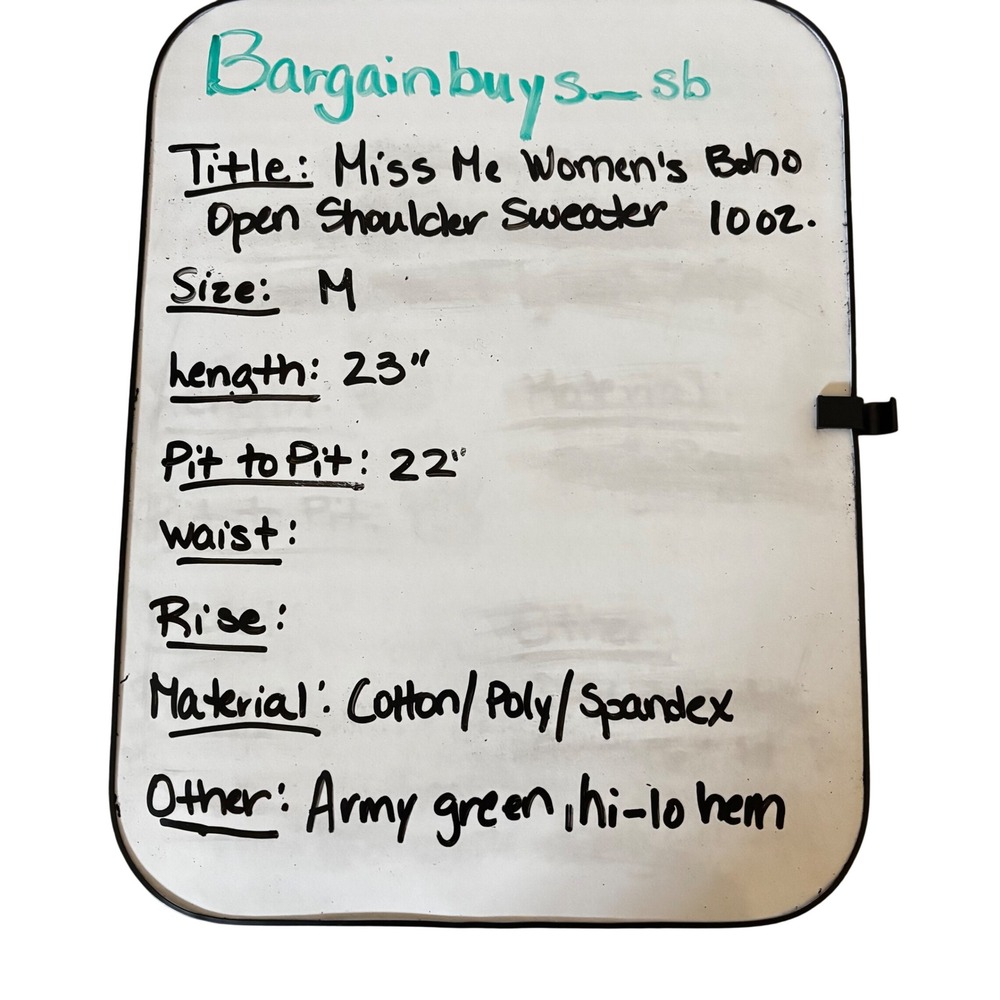 Bargainbuys_sb
Title: Miss Me Women's Boho
Open Shoulder Sweater 10oz.
Size: M
Length: 23"
Pit to Pit: 22"
Waist:
Rise:
Material: Cotton/Poly/Spandex
Other: Army green, hi-lo hem